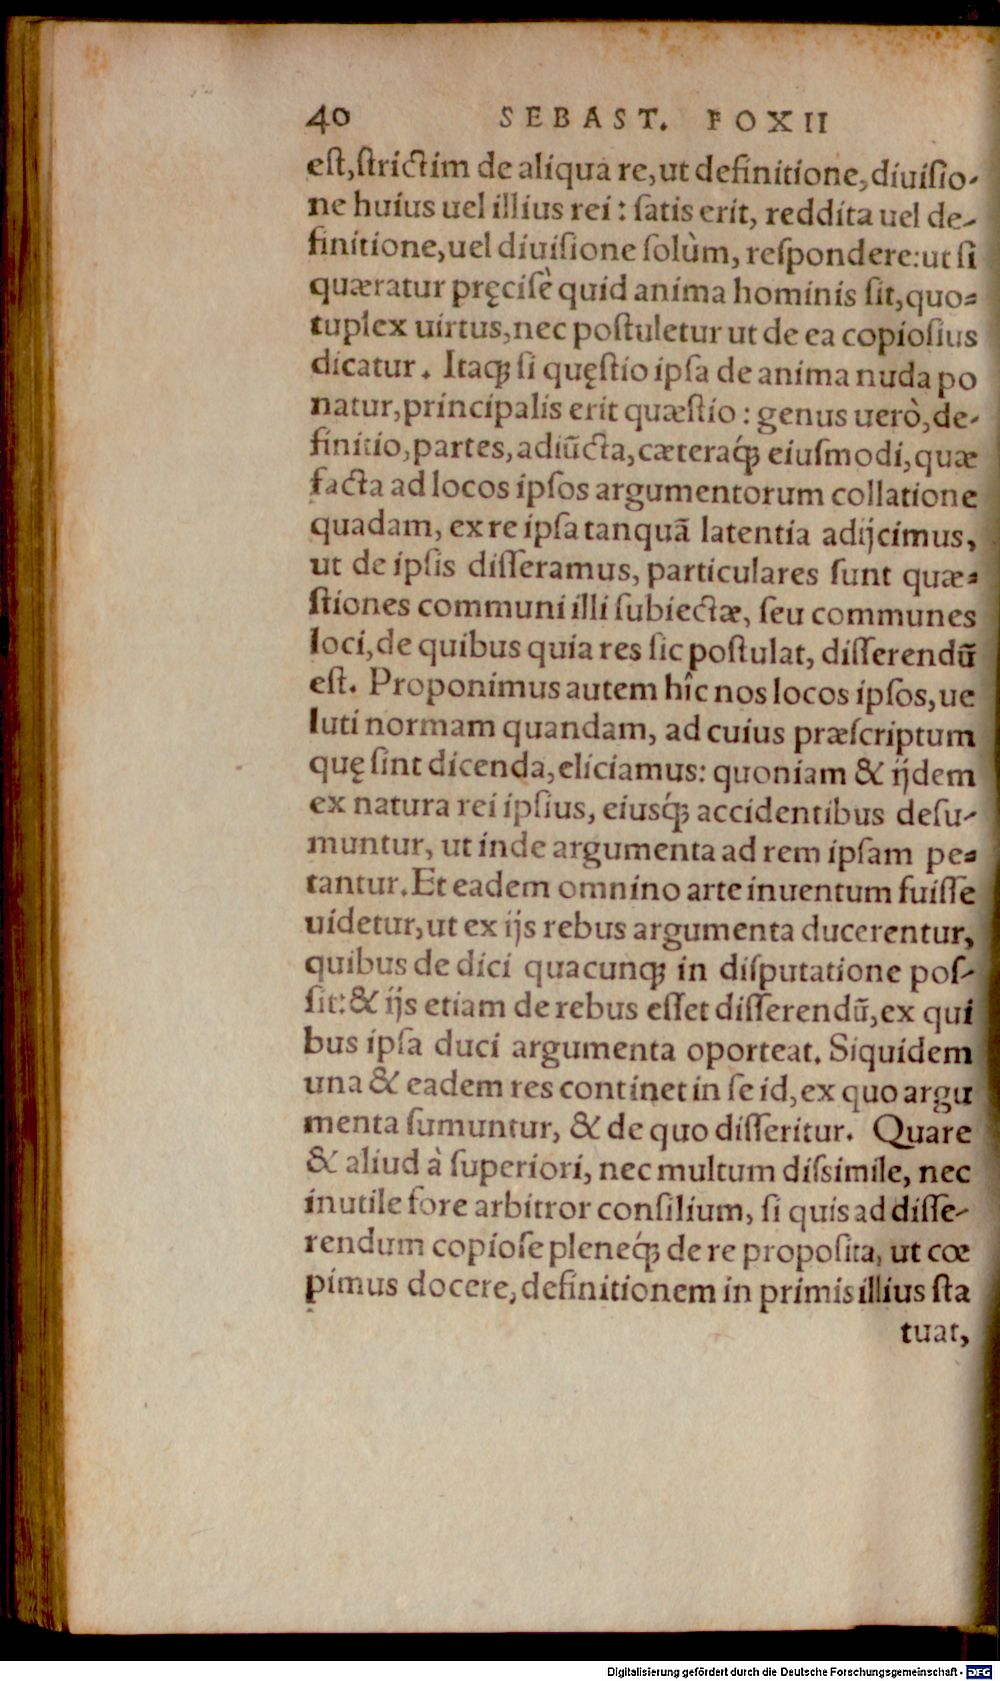 40 SEBAST. FOXII
eſt, ſtrictim de aliqua re, ut definitione, diuiſio-
ne huius uel illius rei: ſatis erit, reddita uel de-
finitione, uel diuiſione ſolùm, reſpondere: ut ſi
quæratur pręciſè quid anima hominis ſit, quo-
tuplex uirtus, nec poſtuletur ut de ea copioſius
dicatur. Itaq́; ſi quęſtio ipſa de anima nuda po
natur, principalis erit quæſtio: genus uerò, de-
finitio, partes, adiũcta, cæteraq́; eiuſmodi, quæ
facta ad locos ipſos argumentorum collatione
quadam, ex re ipſa tanquã latentia adijcimus,
ut de ipſis diſſeramus, particulares ſunt quæ-
ſtiones communi illi ſubiectæ, ſeu communes
loci, de quibus quia res ſic poſtulat, diſſerendũ
eſt. Proponimus autem hîc nos locos ipſos, ue
luti normam quandam, ad cuius præſcriptum
quę ſint dicenda, eliciamus: quoniam & ijdem
ex natura rei ipſius, eiusq́; accidentibus deſu-
muntur, ut inde argumenta ad rem ipſam pe-
tantur. Et eadem omnino arte inuentum fuiſſe
uidetur, ut ex ijs rebus argumenta ducerentur,
quibus de dici quacunq; in diſputatione poſ-
ſit: & ijs etiam de rebus eſſet diſſerendũ, ex qui
bus ipſa duci argumenta oporteat. Siquidem
una & eadem res continet in ſe id, ex quo argu
menta ſumuntur, & de quo diſſeritur. Quare
& aliud à ſuperiori, nec multum diſsimile, nec
inutile fore arbitror conſilium, ſi quis ad diſſe-
rendum copioſe pleneq́; de re propoſita, ut cœ
pimus docere, definitionem in primis illius ſta
tuat,
Digitalisierung gefördert durch die Deutsche Forschungsgemeinschaft - DFG